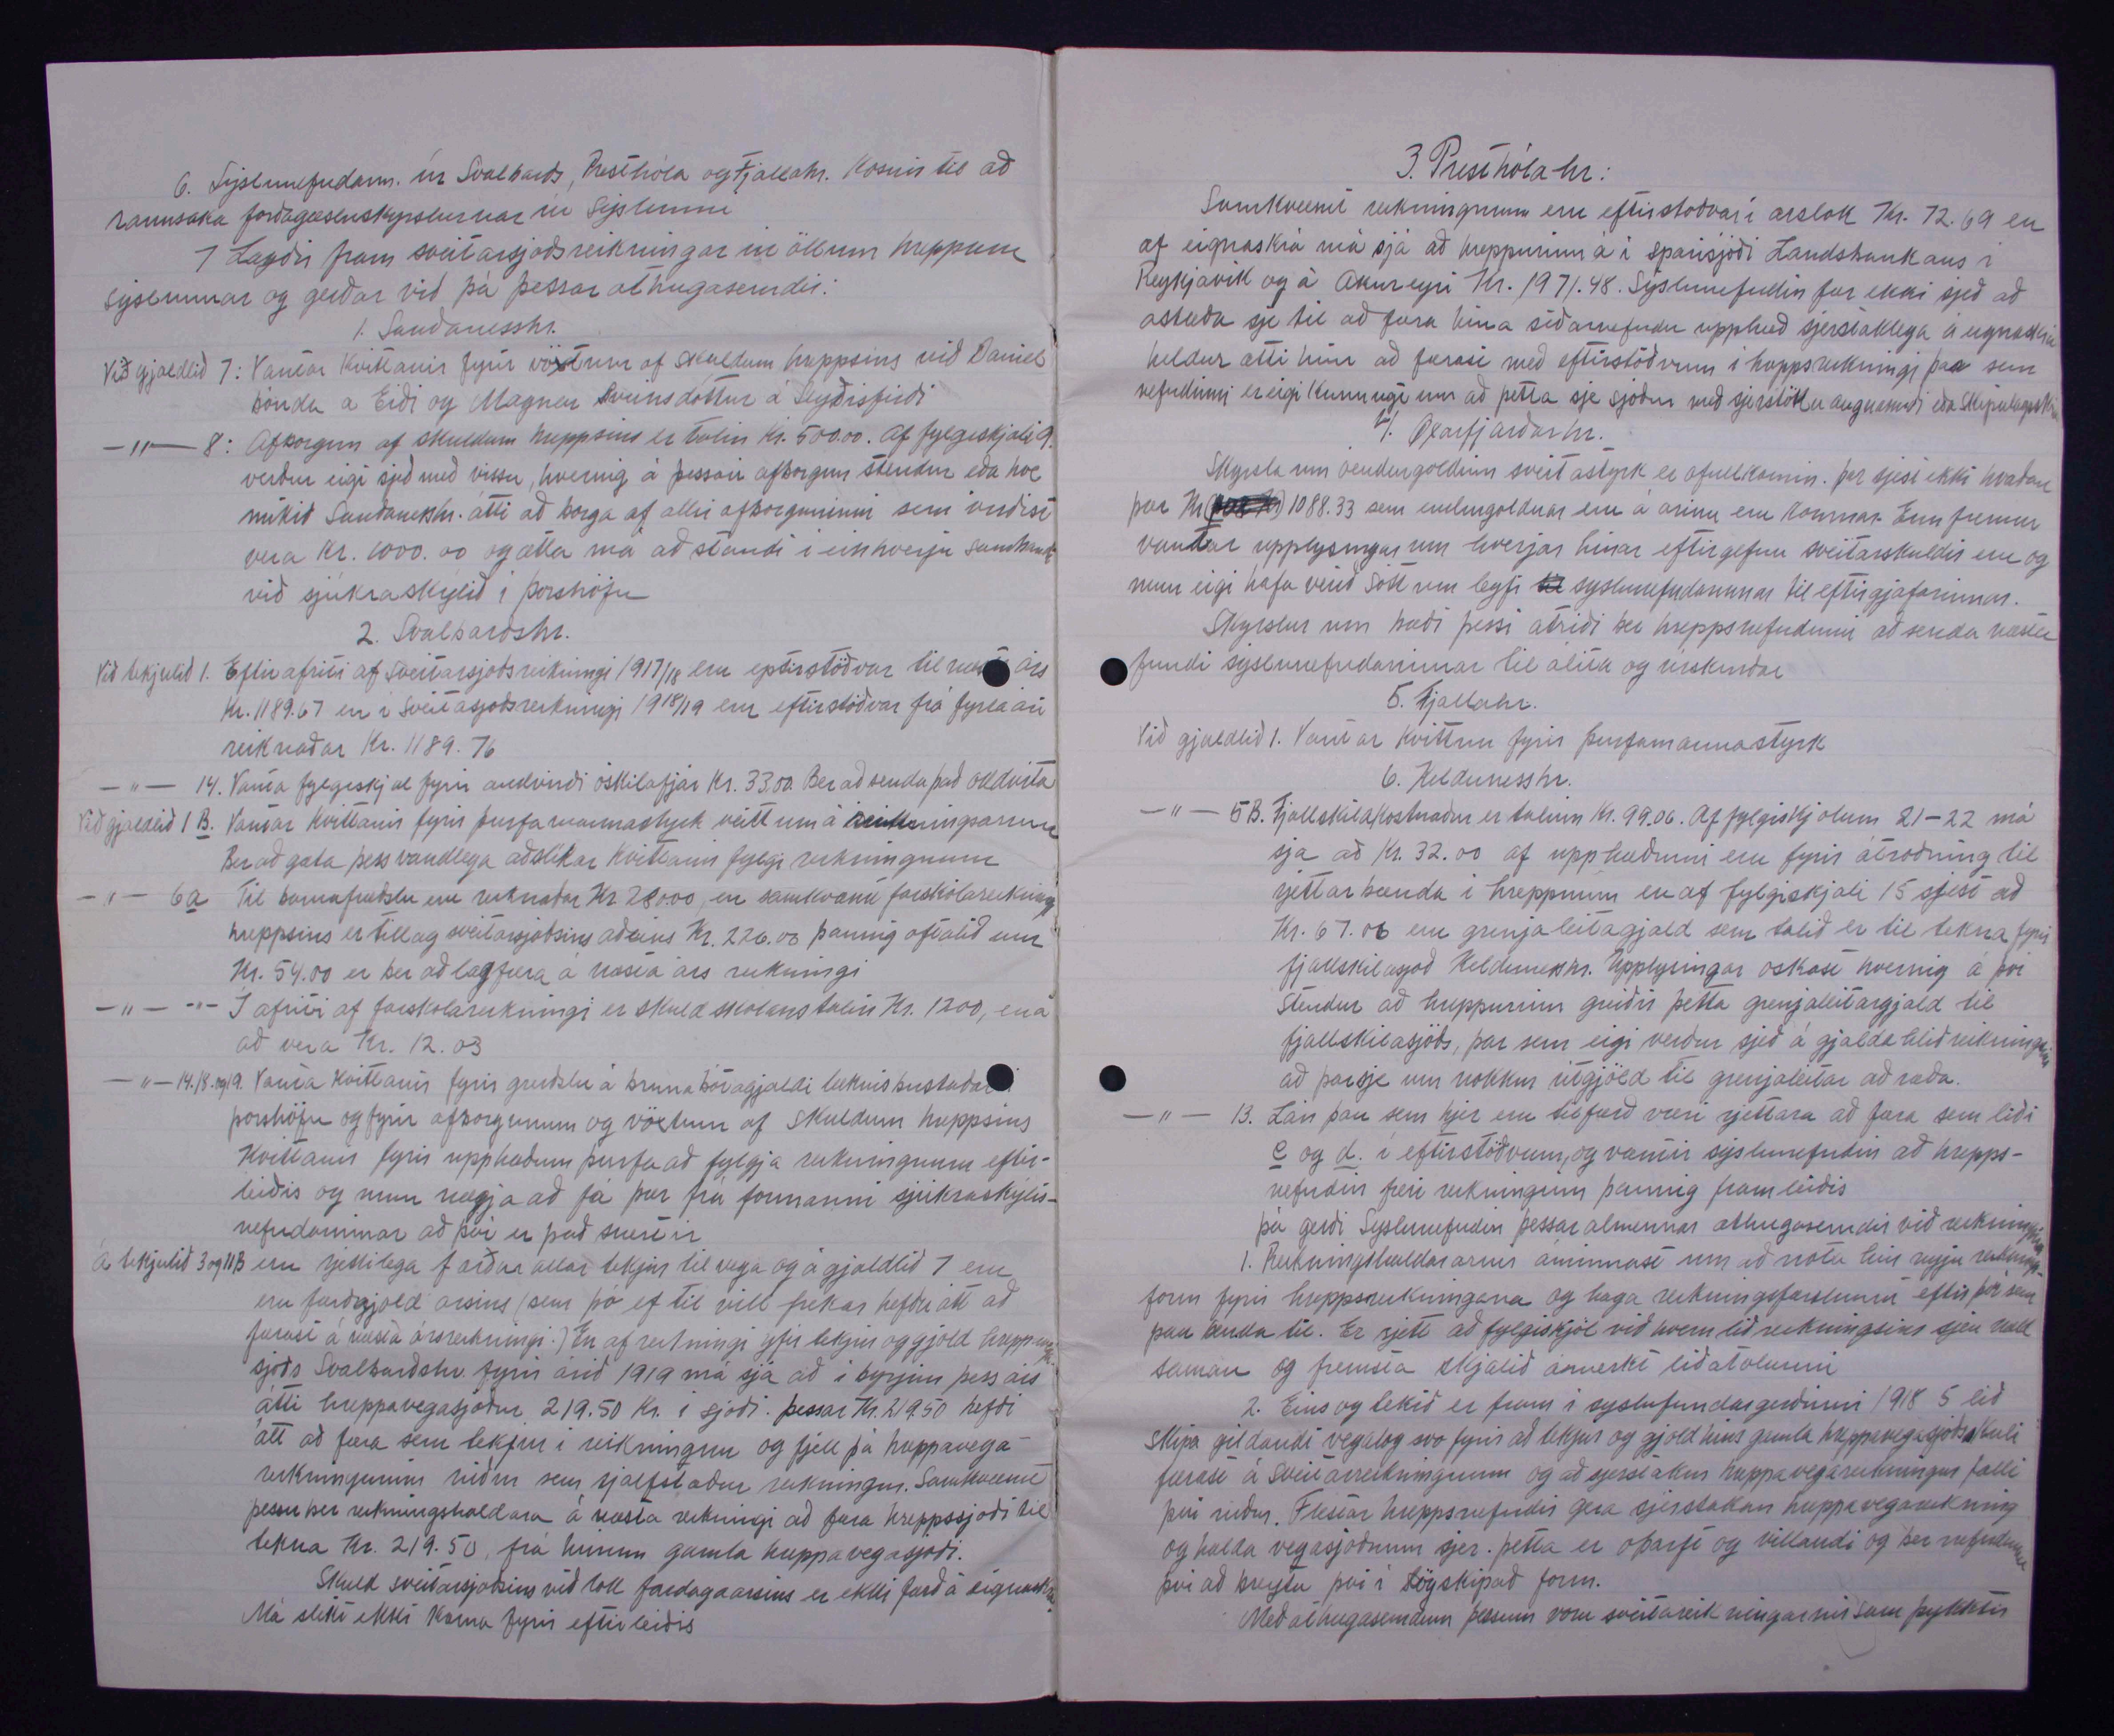 6. Sýslunefndarm. úr Svalbarðs, Presthóla og Fjallahr. kosnir til að
rannsaka forðagæsluskýrslurnar úr sýslunni
7 Lagðir fram sveitarsjóðsreikningar úr öllum hreppum
sýslunnar og gerðar við þá þessar athugasemdir:
1. Sauðanesshr.
Við gjaldlið 7: Vantar kvittanir fyrir vöxtum af skuldum hreppsins við Daníel
bónda á Eiði og Magneu Sveinsdóttur á Seyðisfirði
—"— 8: Afborgun af skuldum hreppsins er talin Kr. 500.00. Af fylgiskjali 9.
verður eigi sjeð með vissu, hvernig á þessari afborgun stendur eða hve
mikið Sauðaneshr. átti að borga af allri afborguninni sem virðist
vera Kr. 1000.00 og ætla má að standi í einhverju sambandi
við sjúkraskýlið í þórshöfn
2. Svalbarðshr.
Við tekjulið 1. Eftir afriti af sveitarsjóðsreikningi 1917/18 eru eptirstöðvar til næsta árs
Kr. 1189.67 en í sveitasjóðsreikningi 1918/19 eru eftirstöðvar frá fyrra ári
reiknaðar Kr. 1189.76
—"— 14. Vanta fylgiskjal fyrir andvirði óskilafjár Kr. 33,00 Ber að senda það oddvita
Við gjaldlið 1 B. Vantar kvittanir fyrir þurfamannastyrk veittum á reikningsárinu
Ber að gæta þess vandlega að slíkar kvittanir fylgi reikningnum
—"— 6a Til barnafræðslu eru reiknaðar Kr 280,00, en samkvæmt farskólareikning
hreppsins er tillag sveitarsjóðsins aðeins Kr. 226.00 þannig oftalið um
Kr. 54.00 er ber að lagfæra á næsta árs reikningi
—"— —"— Í afriti af farskólareikningi er skuld skólans talin Kr. 1200, en á
að vera Kr. 12.03
—"— 14. 18. og 19. Vanta kvittanir fyrir greiðslu á brunabótagjaldi læknisbústaðar í
þórshöfn og fyrir afborgunum og vöxtum af skuldum hreppsins
Kvittanir fyrir upphæðum þurfa að fylgja reikningnum eftir-
leiðis og mun nægja að fá þær frá formanni sjúkraskýlis-
nefndarinnar að því er það snertir
Á tekjulið 3 og 11B eru rjettilega færðar allar tekjur til vega og á gjaldlið 7 eru
eru færð gjöld ársins (sem þó ef til vill frekar hefðu átt að
færast á næsta ársreikningi.) En af reikningi yfir tekjur og gjöld hreppavega
sjóðs Svalbarðshr. fyrir árið 1919 má sjá að í byrjun þess árs
átti hreppavegasjóður 219.50 Kr. í sjóði. þessar Kr. 219.50 hefði
átt að færa sem tekjur í reikningnum og fjell þá hreppavega-
reikningurinn niður sem sjálfstæður reikningur. Samkvæmt
þessu ber reikningshaldara á næsta reikningi að færa hreppssjóði til
tekna Kr. 219.50, frá hinum gamla hreppavegasjóði.
Skuld sveitarsjóðsins við lok fardagaársins er ekki færð á eignaskrá
Má slíkt ekki koma fyrir eftirleiðis
3. Presthólahr:
Samkvæmt reikningnum eru eftirstöðvar í árslok Kr. 72.69 en
af eignaskrá má sjá að hreppurinn á í sparisjóði Landsbankans í
Reykjavík og á Akureyri Kr. 1971.48. Sýslunefndin fær ekki sjeð að
ástæða sje til að færa hina síðarnefndu upphæð sjerstaklega á eignaskrá
heldur ætti hún að færast með eftirstöðvum í hreppsreikningi þar sem
nefndinni er eigi kunnugt um að þetta sje sjóður með sjerstöku augnamiði eða skipulagsskrá
4. Öxarfjarðarhr.
Skýrsla um endurgoldinn sveitastyrk er ófullkomin. þar sjest ekki hvaðan
þær Kr 1088.33 sem endurgoldnar eru á árinu eru komnar. Enn fremur
vantar upplýsingar um hverjar hinar eftirgefnu sveitarskuldir eru og
mun eigi hafa verið sótt um leyfi sýslunefndarinnar til eftirgjafarinnar.
Skýrslur um bæði þessi atriði ber hreppsnefndinni að senda næsta
fundi sýslunefndarinnar til álita og úrskurðar
5. Fjallahr.
Við gjaldlið 1. Vantar kvittun fyrir þurfamannastyrk
6. Keldunesshr.
—"— 5B. Fjallskilakostnaður er talinn Kr. 99.06. Af fylgiskjölum 21-22 má
sjá að Kr. 32.00 af upphæðinni eru fyrir átroðning til
rjettarbænda í hreppnum en af fylgiskjali 15 sjest að
Kr. 67.06 eru grenjaleitagjald sem talið er til tekna fyrir
fjallskilasjóð Kelduneshr. Upplýsingar óskast hvernig á því
stendur að hreppurinn greiðir þetta grenjaleitargjald til
fjallskilasjóðs, þar sem eigi verður sjeð á gjaldahlið reikningsins
að þar sje um nokkur útgjöld til grenjaleitar að ræða.
—"— 13. Lán þau sem hjer eru tilfærð væri rjettara að færa sem liði
c og d. í eftirstöðvum, og væntir sýslunefndin að hrepps-
nefndin færi reikningum þannig framleiðis
þá gerði Sýslunefndin þessar almennar athugasemdir við reikningana
1. Reikningshaldararnir áminnast um að nota hin nýju reiknings-
form fyrir hreppsreikningana og haga reikningsfærslunni eftir því sem
þau benda til. Er rjett að fylgiskjöl við hvern lið reikningsins sjeu næld
saman og fremsta skjalið ámerkt liðatölunni
2. Eins og tekið er fram í sýslufundargerðinni 1918 5 lið
skipa gildandi vegalög svo fyrir að tekjur og gjöld hins gamla hreppavegasjóðs skuli
færast á sveitarreikningnum og að sjerstakur hreppavegareikningur falli
því niður. Flestar hreppsnefndir gera sjerstakan hreppavegareikning
og halda vegasjóðnum sjer. þetta er óþarft og villandi og ber nefndunum
því að breyta því í lögskipað form.
Með athugasemdum þessum voru sveitareikningarnir samþykktir